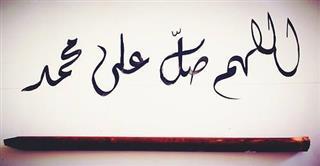 اللهم صلّ على محمد